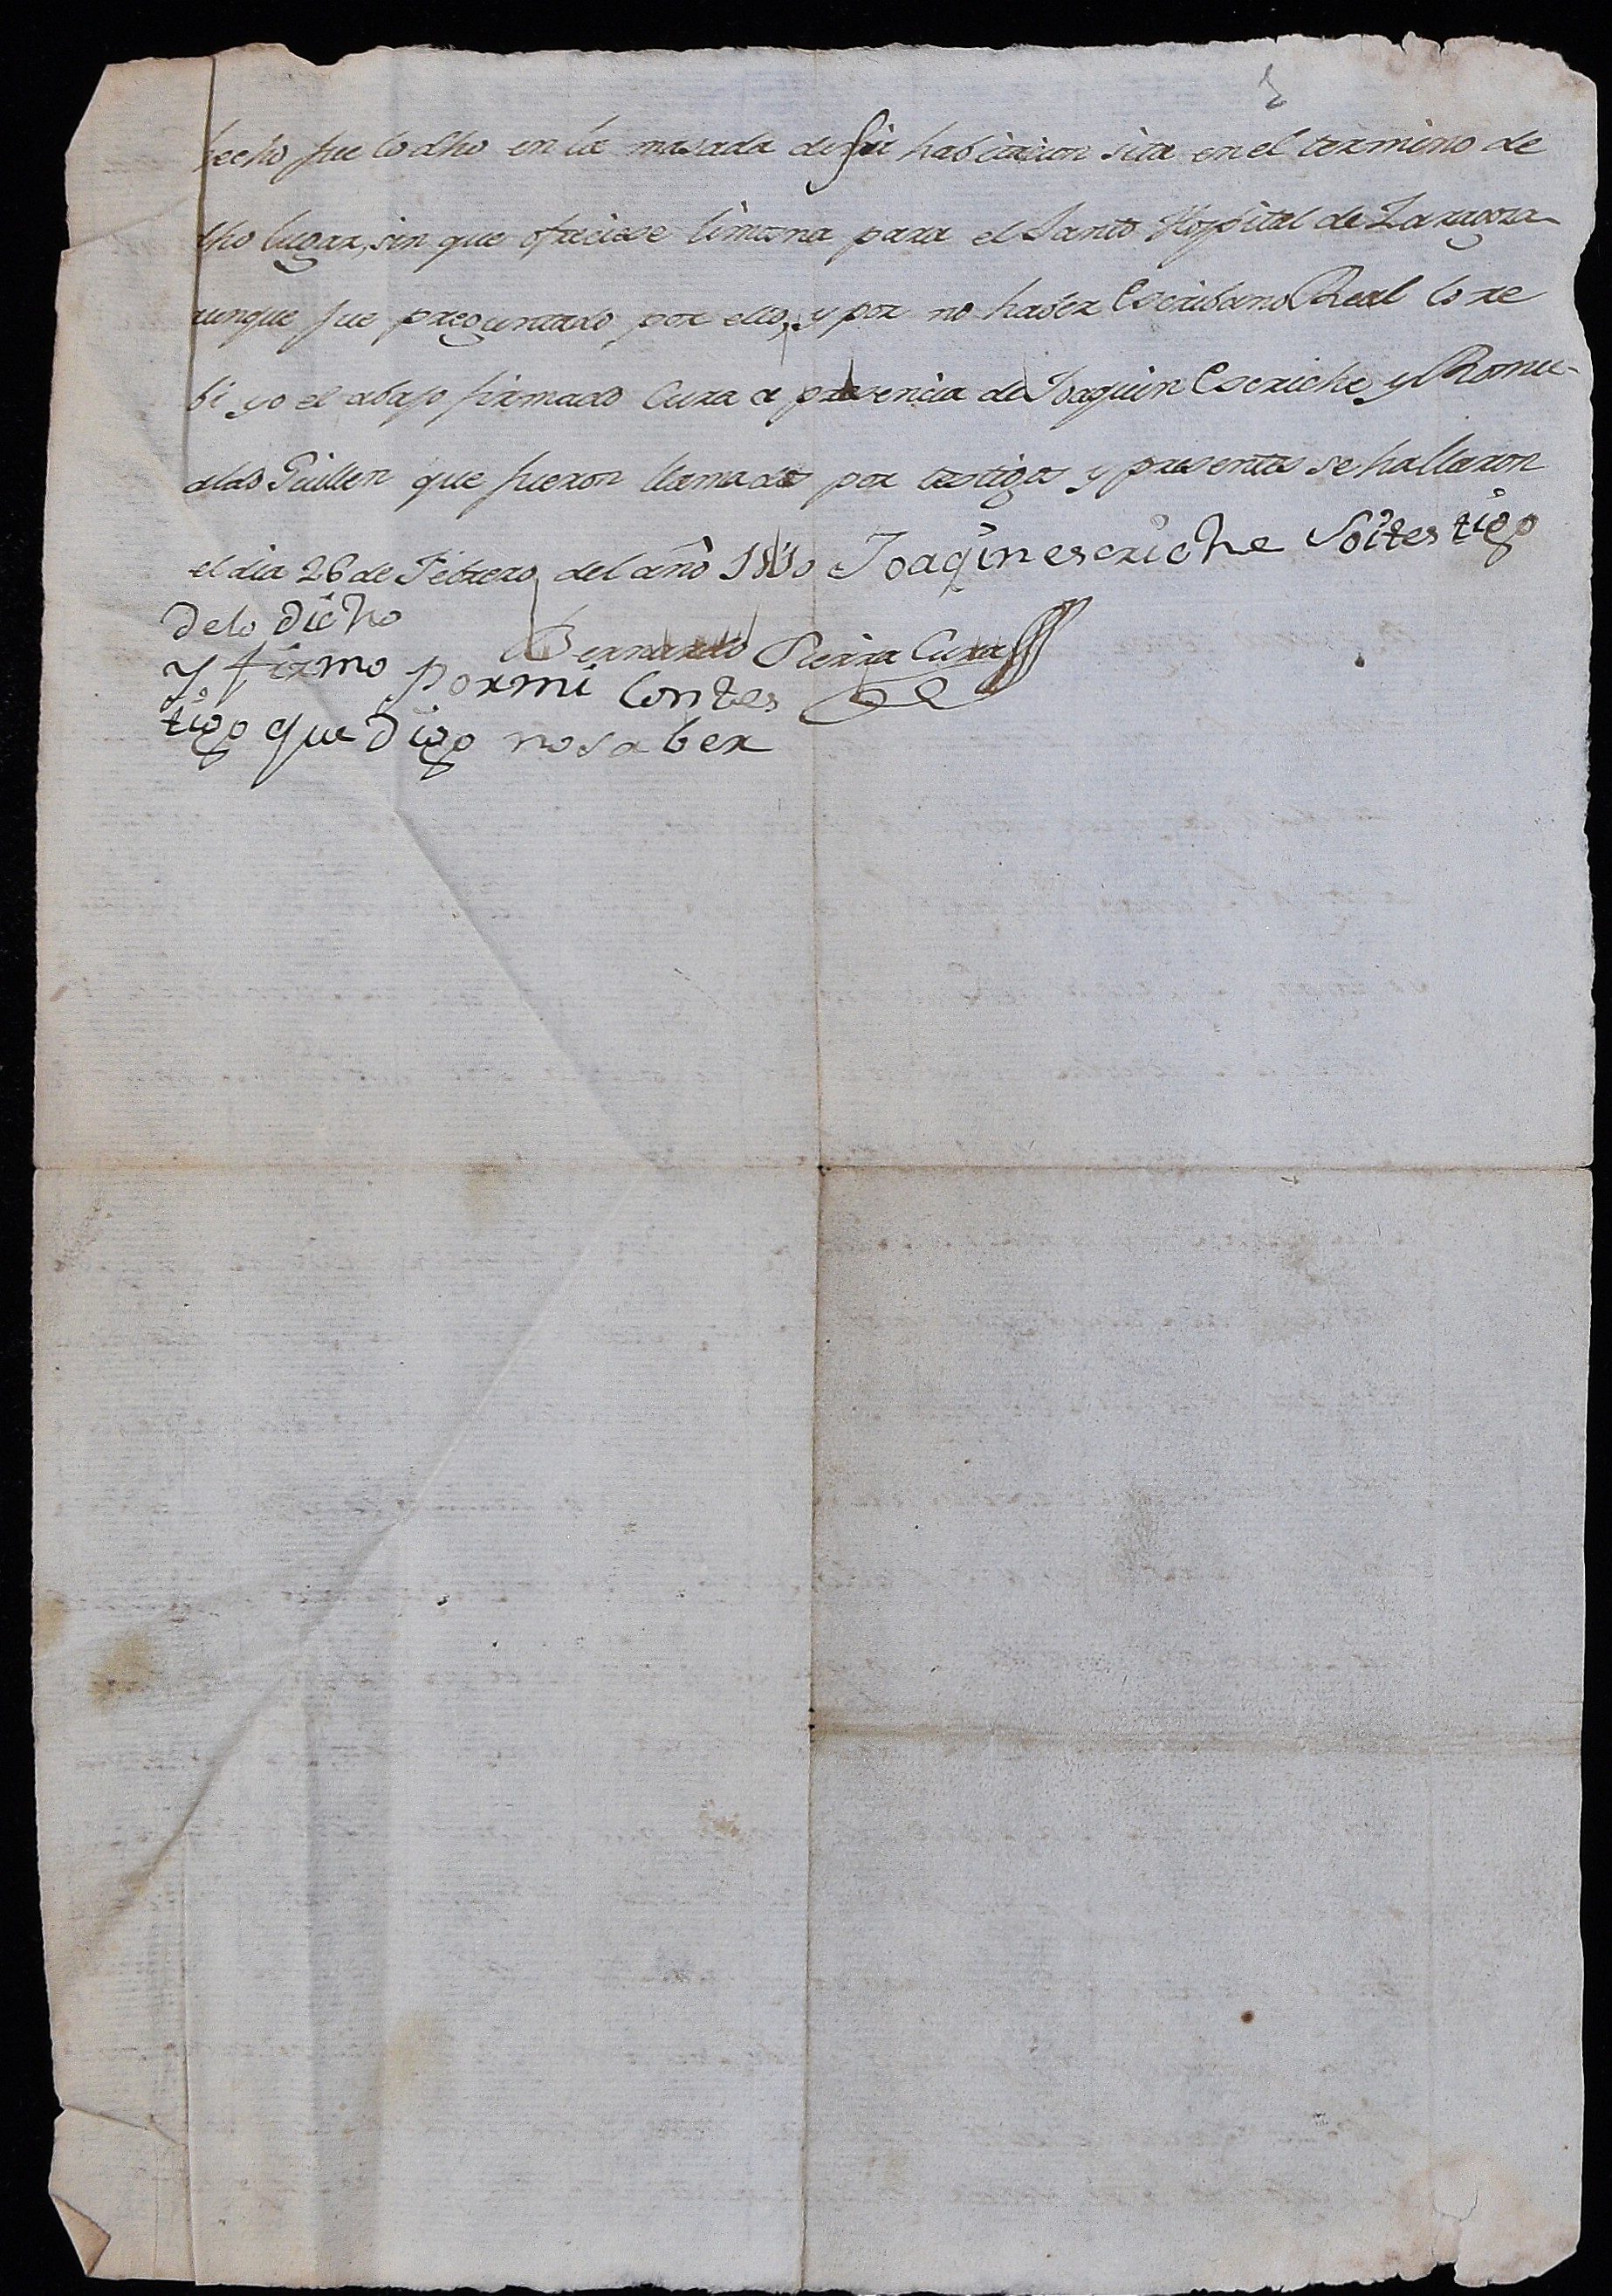 hecho fue lo dho en la masada de su habitacion sita en el termino de
dho lugar, sin que ofreciese limosna para el Santo Hospital de Zaragoza
aunque fue preguntado por ello, y por no haber Escribano Real lo re
bi yo el abajo firmado Cura a presencia de Joaquin Escriche y Romu-
aldo Guillen que fueron llamados por testigos y presentes se hallaron
el dia 26 de Febrero del año Joaqin escriche Soi testigo
de lo dicho
Bernardo Pierra Cura
y firmo por mi Contes
tigo que Digo no saber